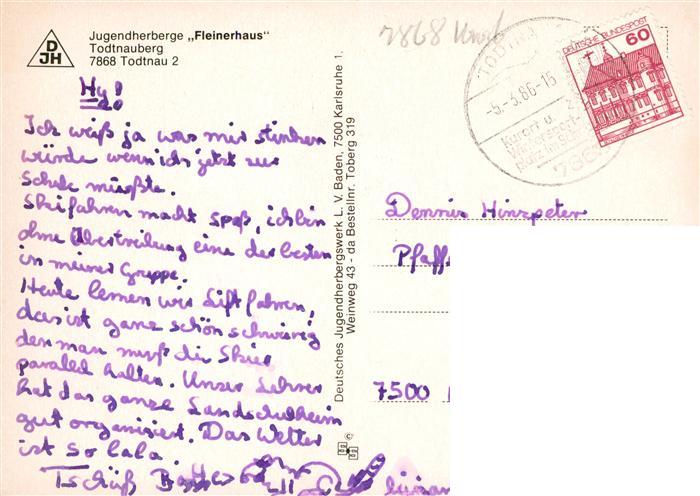 DJH
Jugendherberge „Fleinerhaus"
Todtnauberg
7868 Todtnau 2
Hy!
Ich weiß ja was mir stinken
würde wenn ich jetzt zur
Schule müßte.
Skifahren macht Spaß, ich bin
ohne Übertreibung eine der besten
in meiner Gruppe.
Heute lernen wir Lift fahren,
das ist ganz schön schwierig
den man muß die Skier
parallel halten. Unser Lehrer
hat das ganze Landschulheim
gut organisiert. Das Wetter
ist so lala.
Tschüß
Deutsches Jugendherbergswerk L. V. Baden, 7500 Karlsruhe 1.
Weinweg 43 - da Bestellnr. Toberg 319
©
7868
TODTNAU
-5.-3.86-15
Kurort u.
Wintersport-
platz im
786
DEUTSCHE BUNDESPOST
60
Dennis Hinzpeter
Pfaff
7500